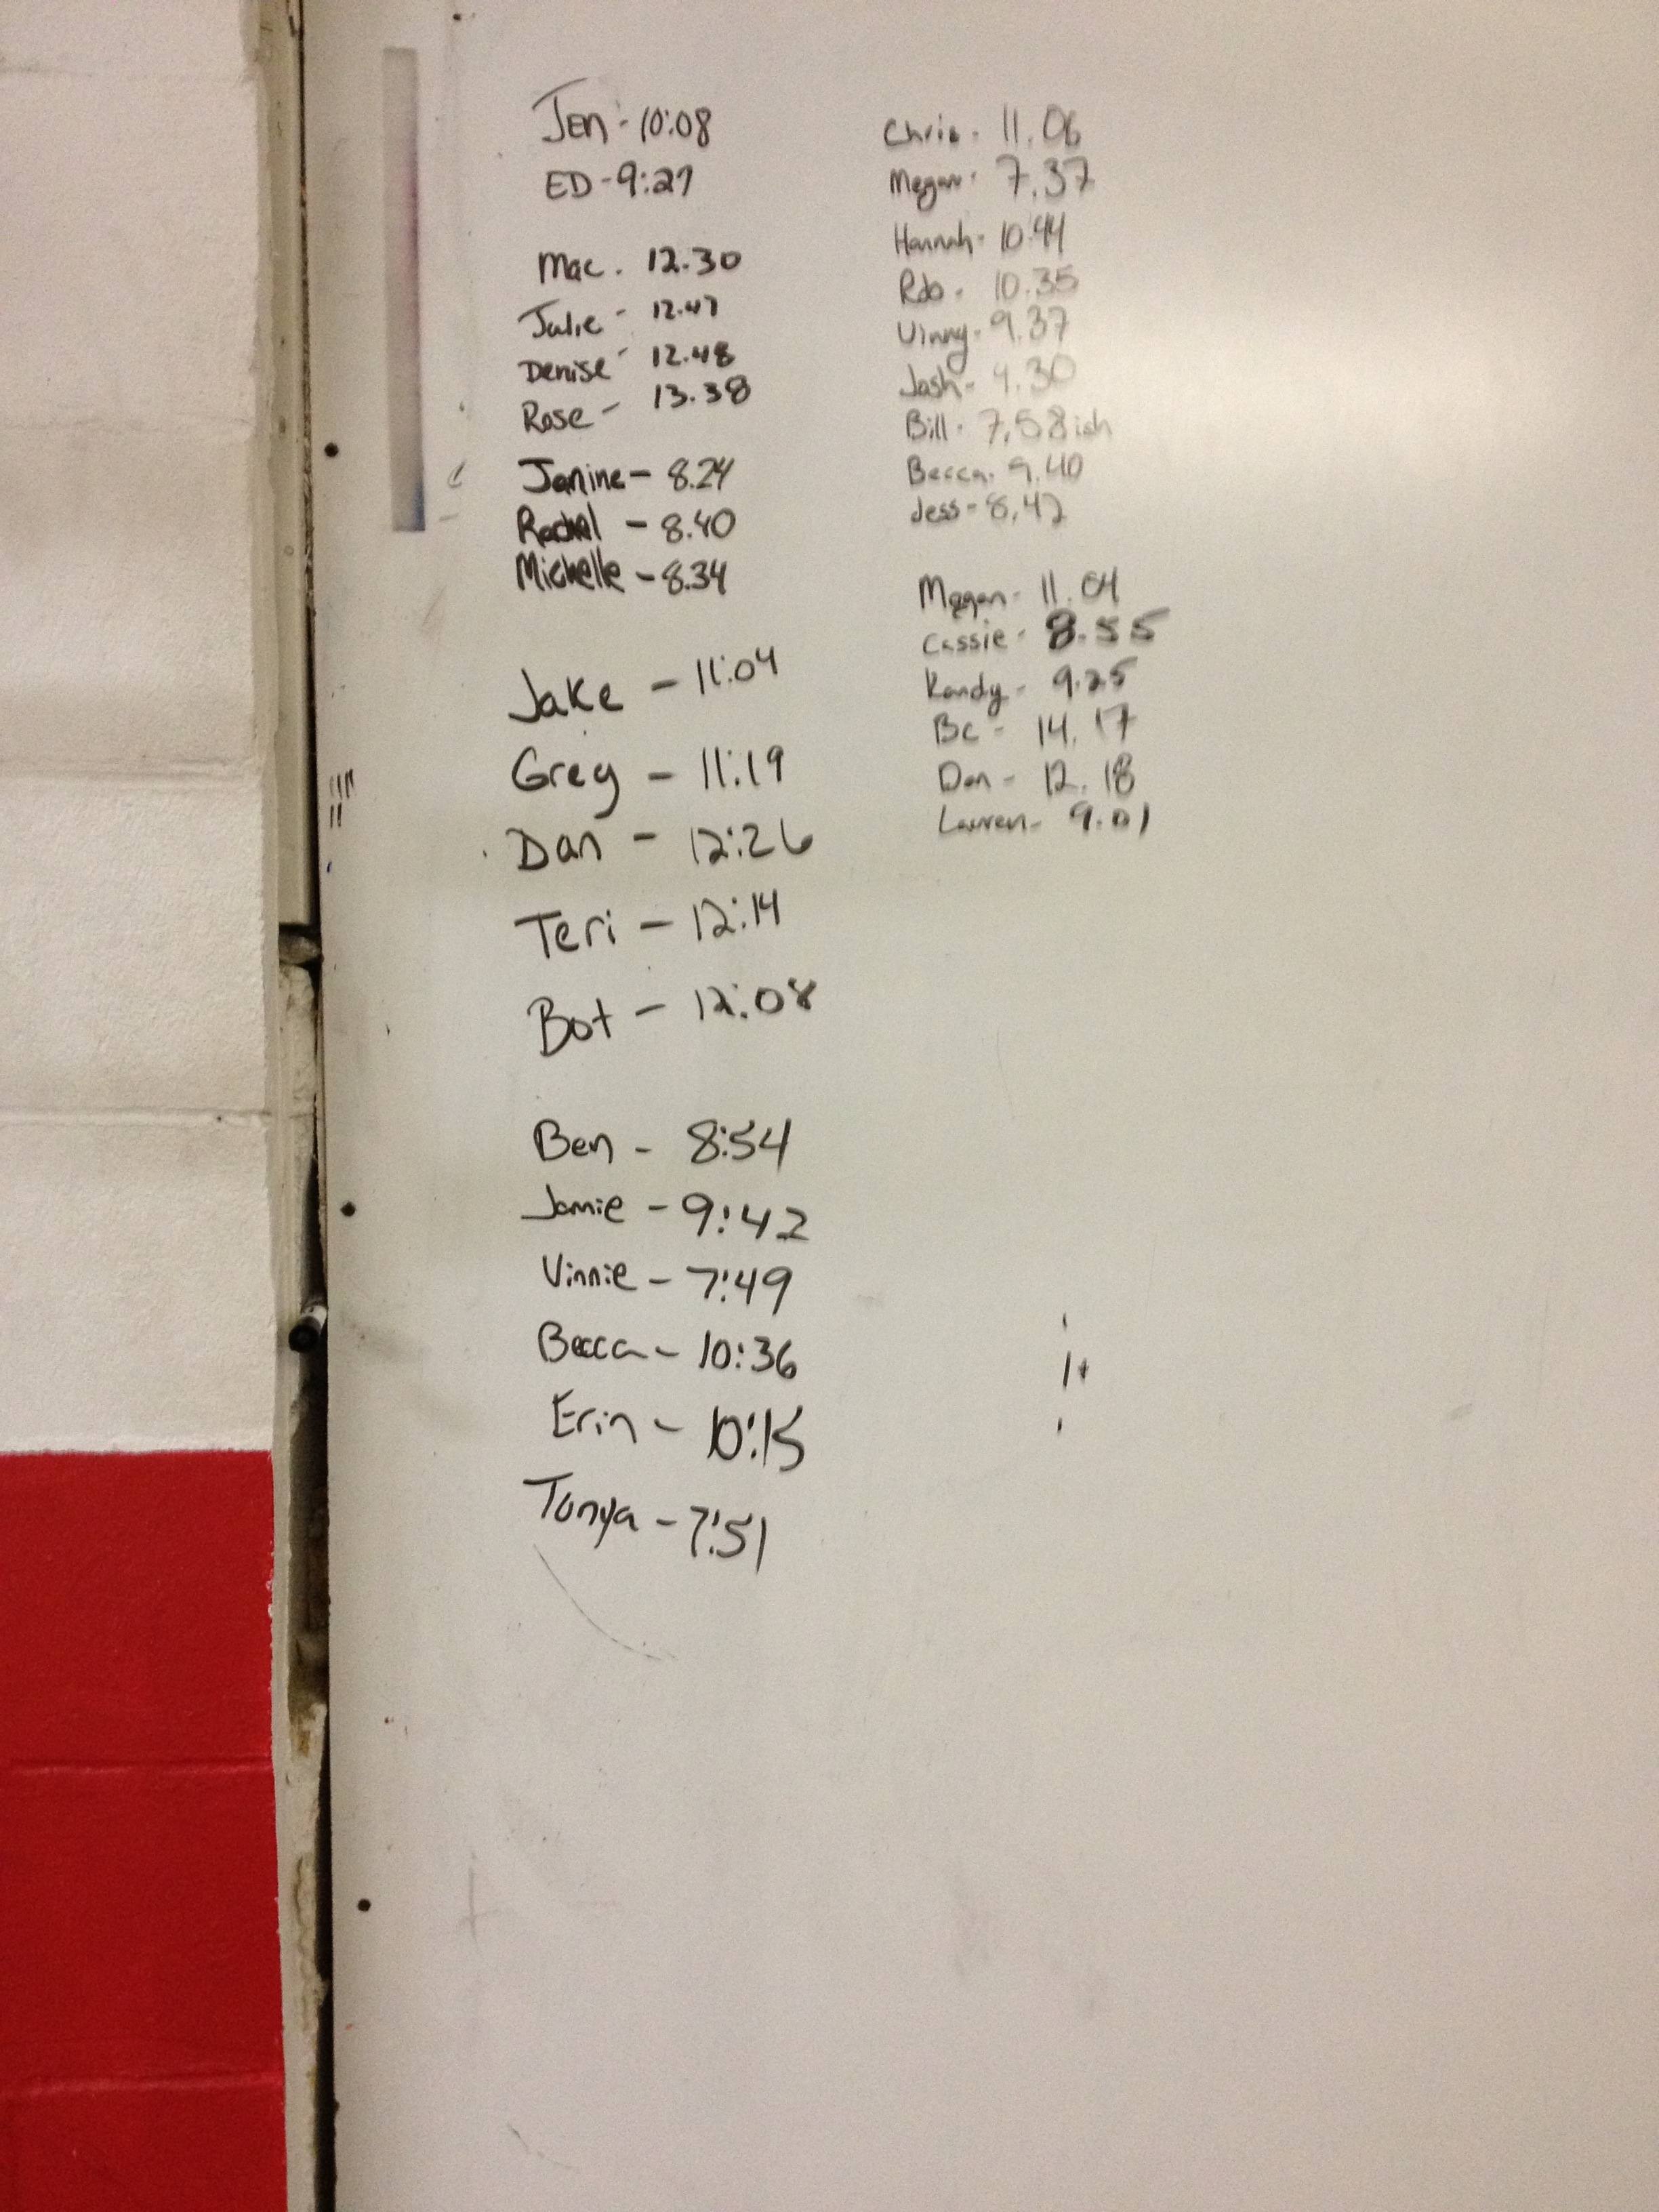 JEn - 10:08
ED - 9:27
Mac. 12.30
Julie - 12.47
Denise - 12.48
Rose - 13.38
Janine - 8.24
Rachel - 8.40
Michelle - 8.34
Jake - 11:04
Greg - 11:19
Dan - 12:26
Teri - 12:14
Bot - 12:08
Ben - 8:54
Jamie - 9:42
Vinnie - 7:49
Becca - 10:36
Erin - 10:15
Tonya - 7:51
Chris - 11.06
Megan - 7.37
Hannah - 10.44
Rob - 10.35
Vinny - 9.37
Josh - 9.30
Bill - 7.58ish
Becca - 9.40
Jess - 8.42
Megan - 11.04
Cassie - 8.55
9.25
Bc - 14.17
Dan - 12.18
Lauren - 9.01